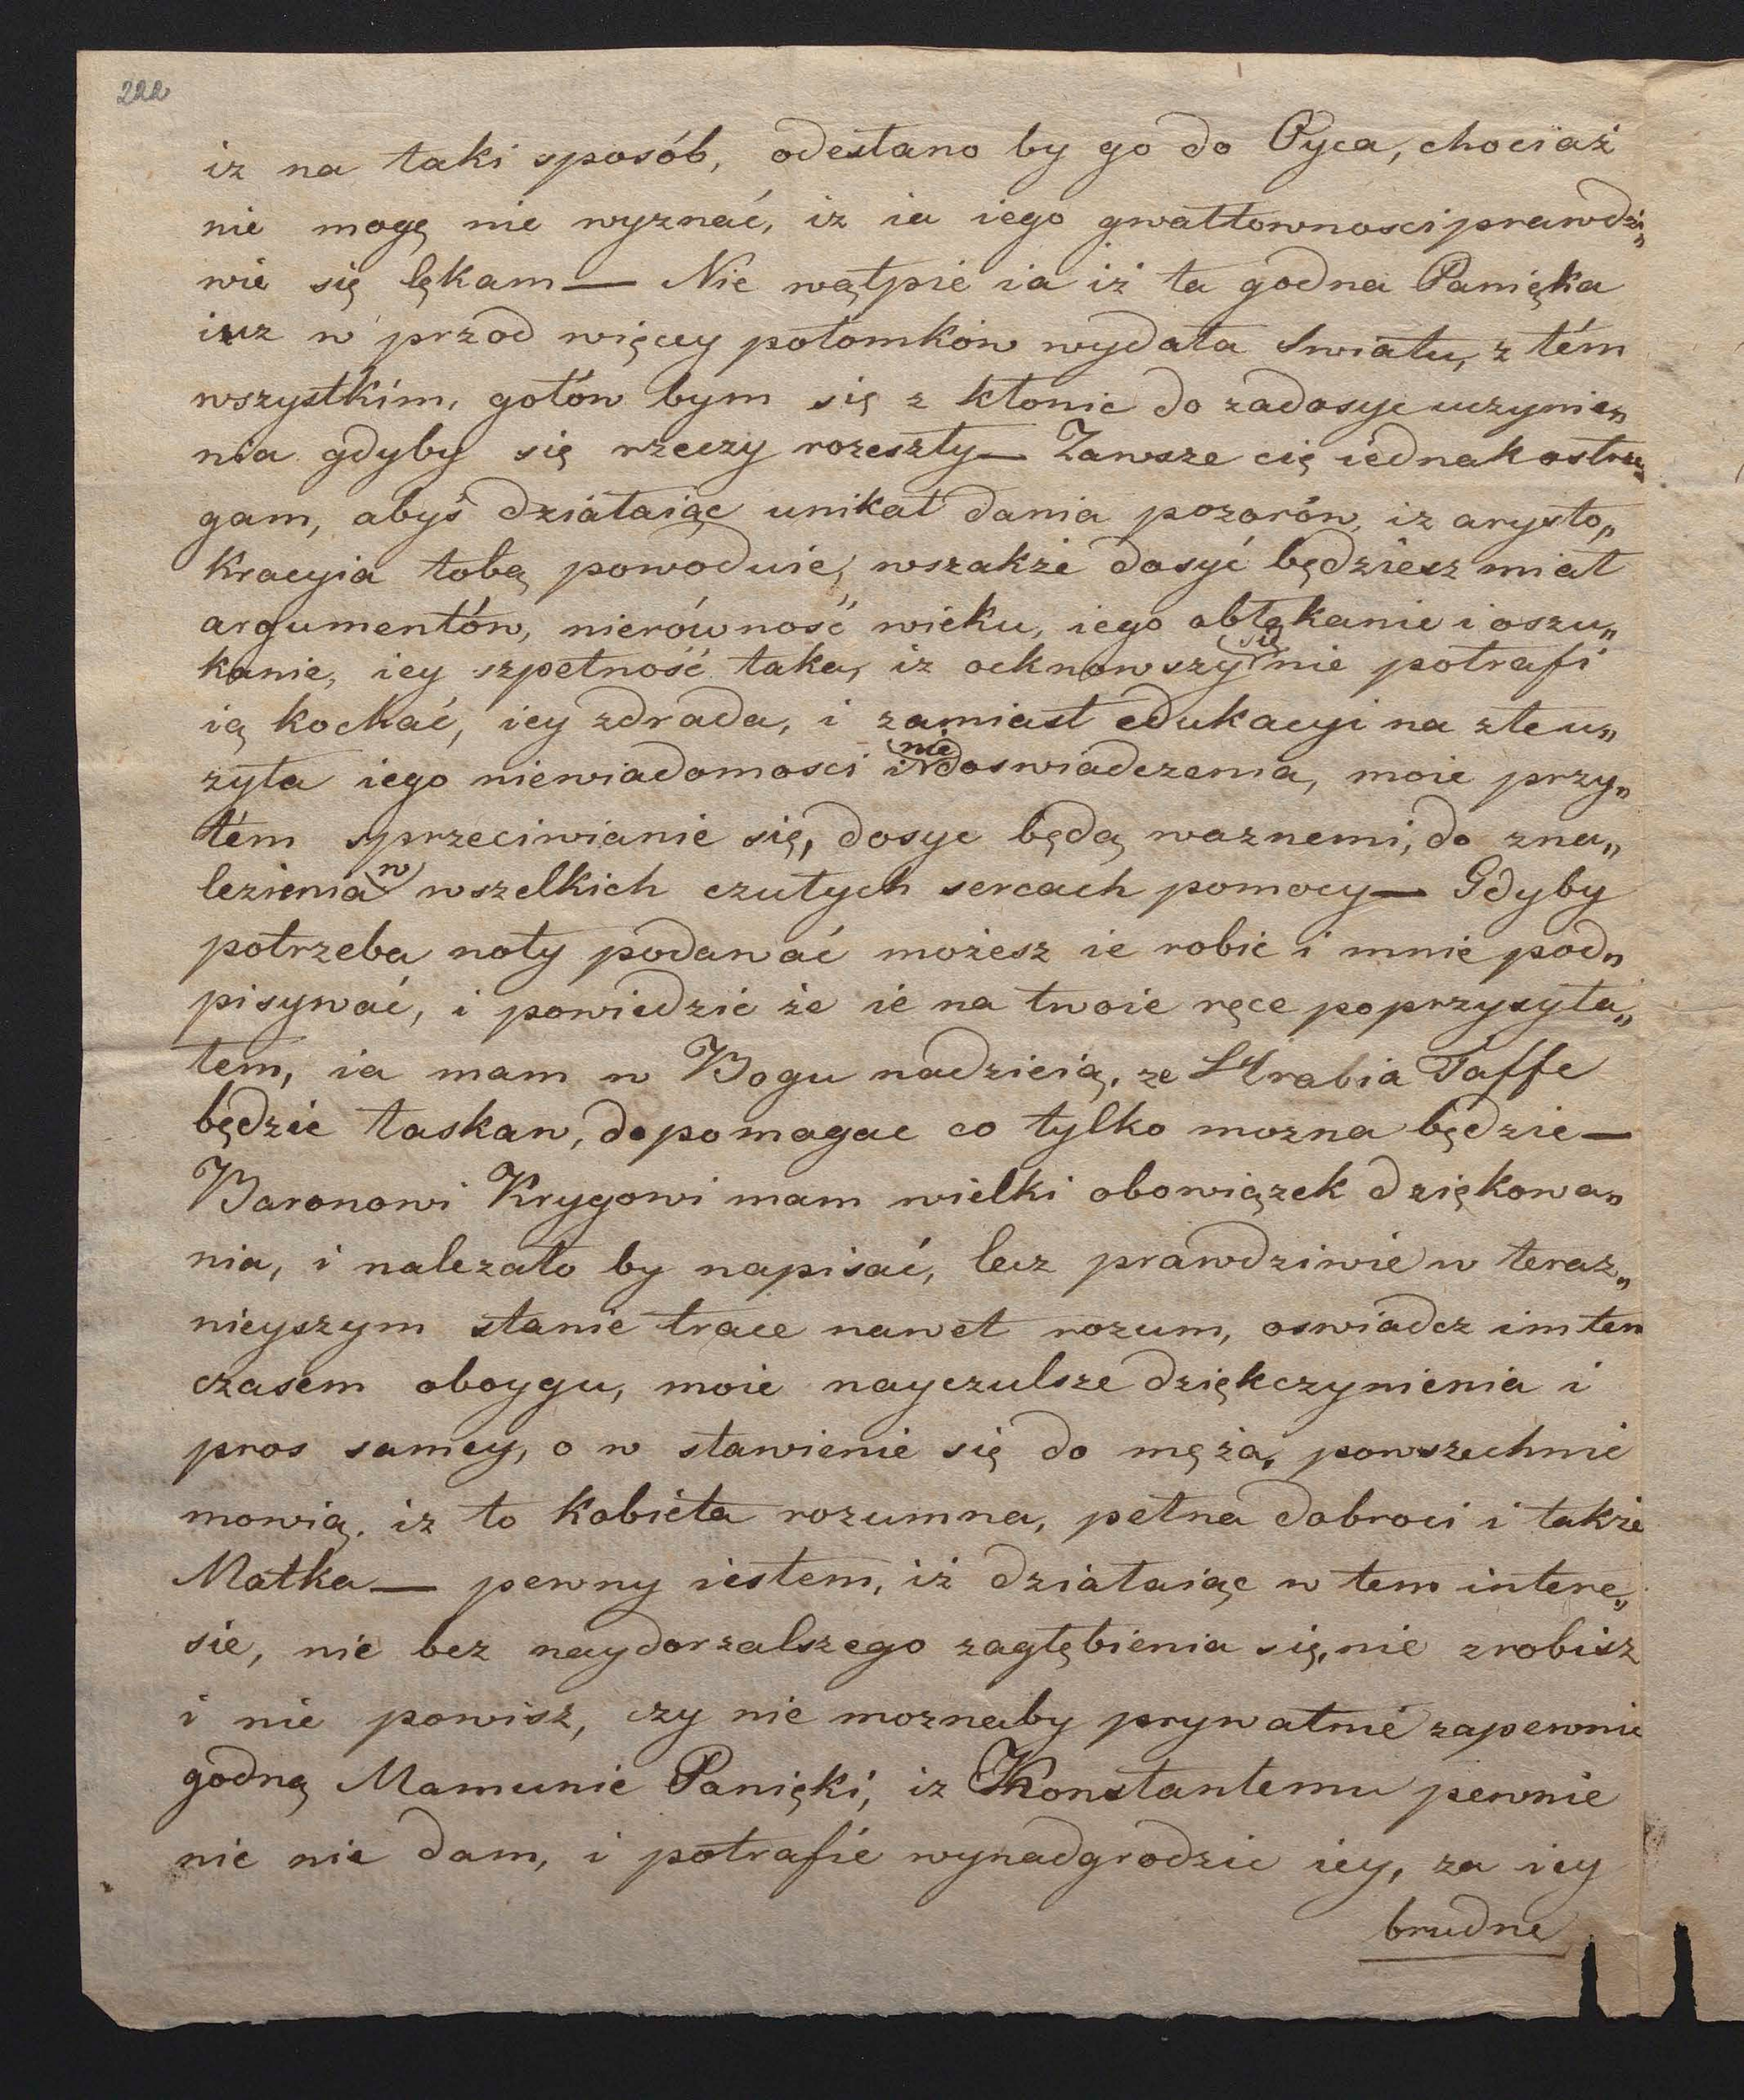 222
iz na taki sposób, odesłano by go do Oyca, chociaż
nie mogę nie wyznać, iz ia iego gwałtownosci prawdzi„
wie się lękam — Nie wątpie ia iż ta godna Panięka
iuz w przod więcey potomków wydała swiatu, z tém
wszystkim, gotów bym się z kłonic do zadosyc uczynie„
nia gdyby się rzeczy rozeszły — Zawsze cię iednak ostrze„
gam, abyś działaiąc unikał dania pozorów, iz arysto„
kracyia tobą powoduie, wszakże dosyć będziesz miał
argumentów, nierówność wieku, iego obłąkanie i oszu„
kanie, iey szpetność taka, iz ocknowszy się nie potrafi
ią kochać, iey zdrada, i zamiast edukacyi na złe u„
zyła iego niewiadomosci i nie doswiadczenia, moie przy„
tém sprzeciwianie się, dosyc będą waznemi, do zna„
lezienia w wszelkich czułych sercach pomocy — Gdyby
potrzeba noty podawać możesz ie robic i mnie pod„
pisywać, i powiedzić że ie na twoie ręce poprzysyła„
łem, ia mam w Bogu nadzieią, ze Hrabia Taffe
będzie łaskaw, dopomagac co tylko mozna będzie —
Baronowi Krygowi mam wielki obowiązek dziękowa„
nia, i nalezało by napisać, lecz prawdziwie w teraz„
nieyszym stanie trace nawet rozum, oswiadcz im ten
czasem oboygu, moie nayczulsze dziękczynienia i
pros samey, o w stawienie się do męża, powszechnie
mowią, iz to kobieta rozumna, pełna dobroci i także
Matka — pewny iestem, iż działaiąc w tem intere„
sie, nie bez naydorzalszego zagłębienia się, nie zrobisz
i nie powisz, czy nie moznaby prywatnie zapewnic
godną Mamunie Panięki, iz Konstantemu pewnie
nic nie dam, i potrafie wynadgrodzic iey, za iey
brudne